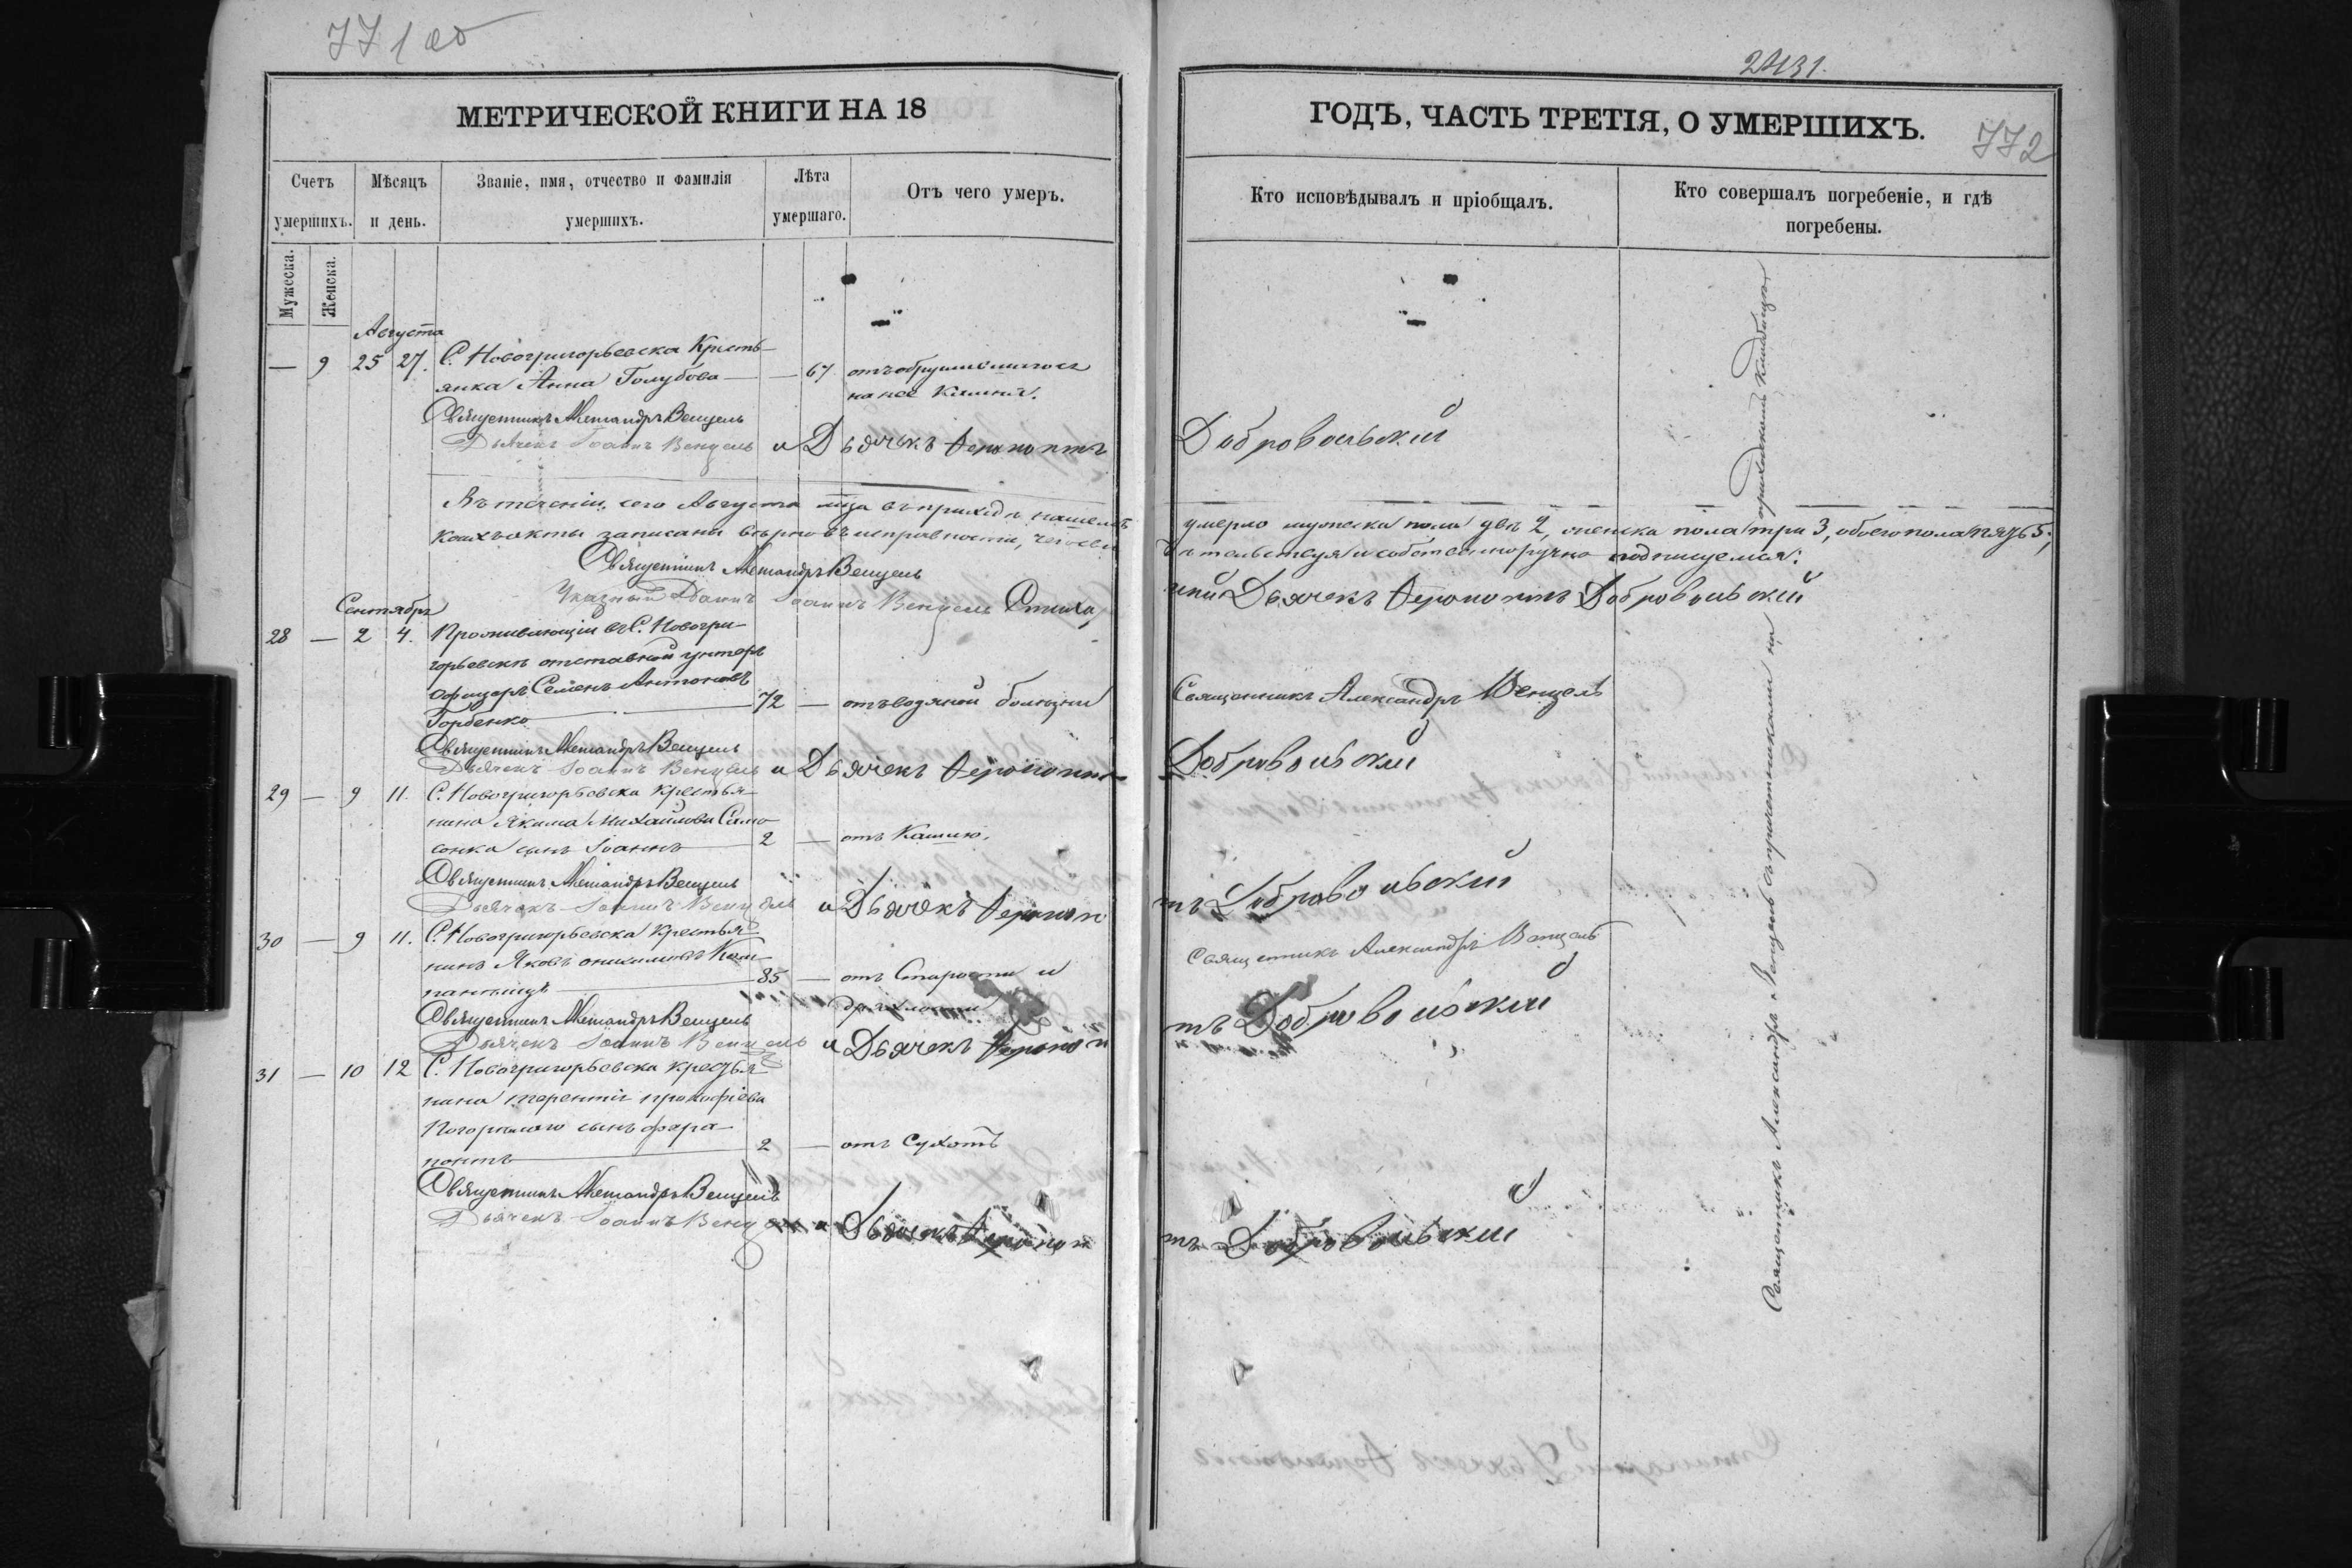 771 об
МЕТРИЧЕСКОЙ КНИГИ НА 18
Счетъ умершихъ.
Мѣсяцъ и день.
Званіе, имя, отчество и фамилія умершихъ.
Лѣта умершаго.
Отъ чего умеръ.
Мужеска.
Женска.
Августа
— 9 25 27. С. Новогригорьевска Кресть-
янка Анна Голубова — — 67 отъ обрушившагося
на нее камня.
Священникъ Александръ Венцель
Дьячекъ Іоаннъ Венцель и Дьячекъ Ферапонтъ
Въ теченіи сего Августа м-ца въ приходѣ нашемъ
коихъ акты записаны вѣрно въ исправности, чего сви
Священникъ Александръ Венцель
Указный Дьячекъ Іоаннъ Венцель
Сентябрь
28 — 2 4. Проживающій въ С. Новогри-
горьевскѣ отставной унтеръ
офицеръ Семенъ Антоновъ
Горбенко — 72 — отъ водяной болѣзни
Священникъ Александръ Венцель
Дьячекъ Іоаннъ Венцель и Дьячекъ Ферапонтъ
29 — 9 11. С. Новогригорьевска Крестья-
нина Якима Михайлова Само-
сонка сынъ Іоаннъ — 2 — отъ Кашлю.
Священникъ Александръ Венцель
Дьячекъ Іоаннъ Венцель и Дьячекъ Ферапон
30 — 9 11. С. Новогригорьевска Крестья-
нинъ Яковъ
— 85 — отъ Старости и
дряхлости
Священникъ Александръ Венцель
Дьячекъ Іоаннъ Венцель и Дьячекъ Ферапон
31 — 10 12 С. Новогригорьевска крестья-
нина Терентія Прокофіева
Погорѣлаго сынъ Фера-
понтъ — 2 — отъ Сухотъ
Священникъ Александръ Венцель
Дьячекъ Іоаннъ Венцель и Дьячекъ Ферапон
2431.
ГОДЪ, ЧАСТЬ ТРЕТІЯ, О УМЕРШИХЪ.
772
Кто исповѣдывалъ и пріобщалъ.
Кто совершалъ погребеніе, и гдѣ погребены.
Добровольскій
умерло мужеска пола два 2, женска пола три 3, обоего пола пять 5,
дѣтельствуя и собственноручно подписуемся:
Дьячекъ Ферапонтъ Добровольскій
Священникъ Александръ Венцель
Добровольскій
тъ Добровольскій
Священникъ Александръ Венцель
тъ Добровольскій
тъ Добровольскій
Священникъ Александръ Венцель съ причетниками на приходскомъ кладбищѣ